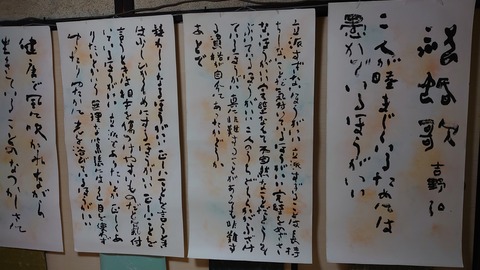 祝婚歌 吉野弘
二人が睦まじくいるためには
愚かでいるほうがいい
立派すぎないほうがいい 立派すぎることは長持
ちしないことだと気付いているほうがいい 完璧をめざさ
ないほうがいい 完璧なんて不自然なことだとうそ
ぶいているほうがいい 二人のうちどちらかがふざけ
ているほうがいい 互いに非難することがあっても非難で
きる資格が自分にあったかどうか
あとで
疑わしくなるほうがいい 正しいことを言うとき
は少しひかえめにするほうがいい 正しいことを
言うときは相手を傷つけやすいものだと気付
いているほうがいい 立派でありたいとか正しくあ
りたいとかいう無理な緊張には色目を使わず
ゆったりゆたかに光を浴びているほうがいい
健康で風に吹かれながら
生きていることのなつかしさに